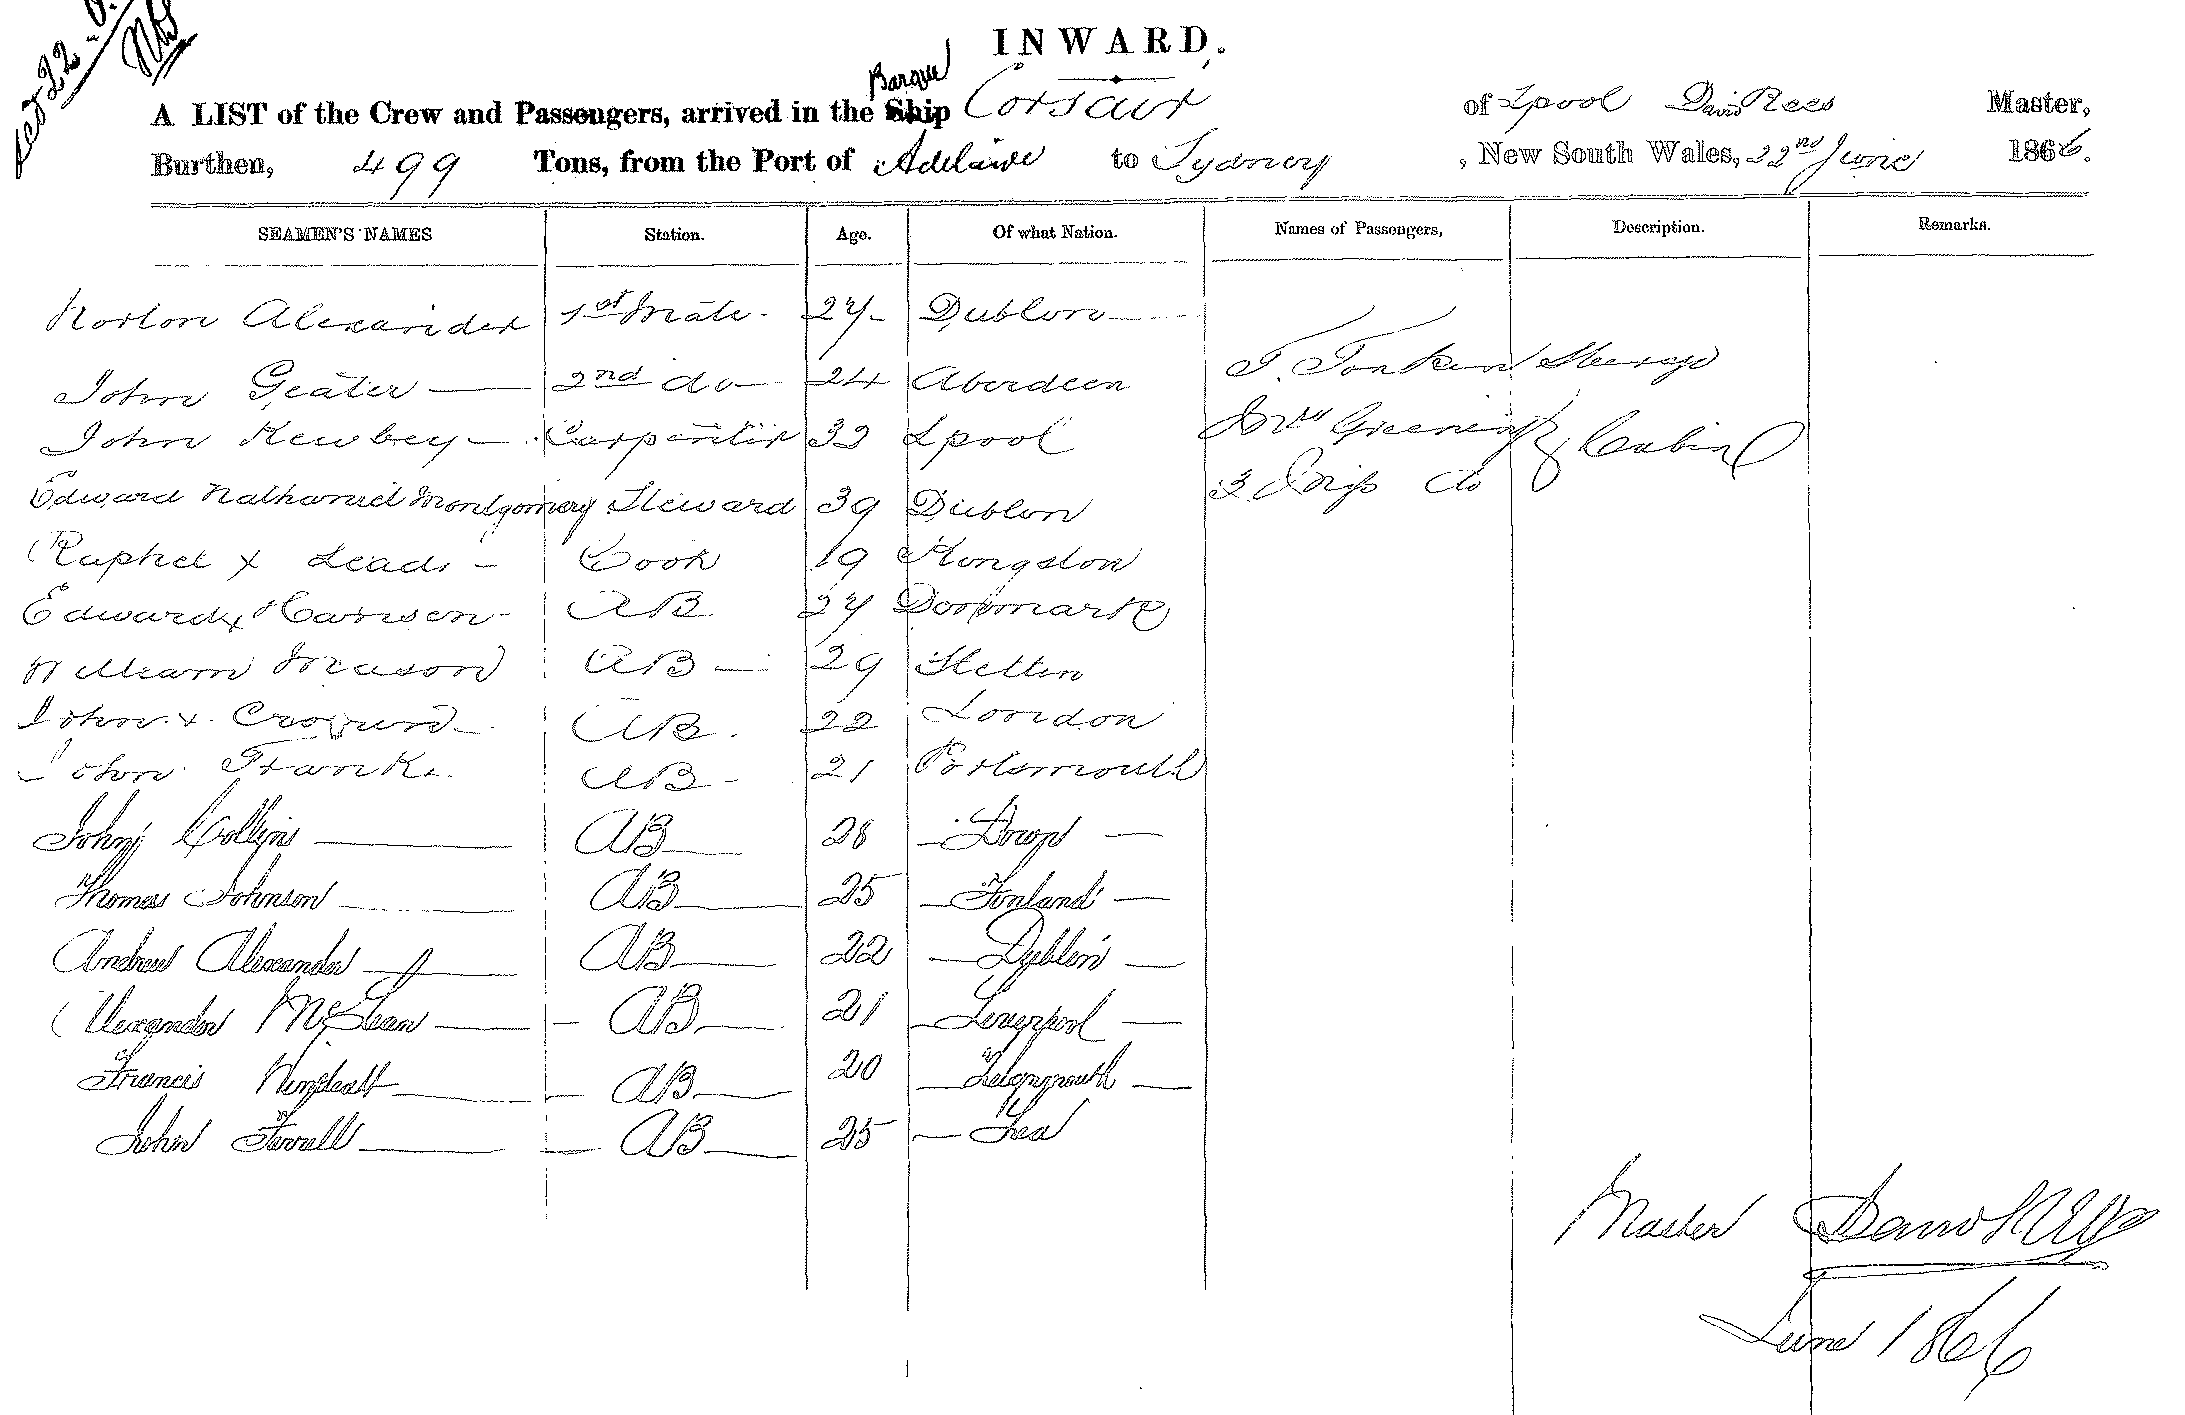 INWARD.
A LIST of the Crew and Passengers, arrived in the Ship Barque Corsair of Lpool David Rees Master,
Burthen, 499 Tons, from the Port of Adelaide to Sydney, New South Wales, 22nd June 1866.
SEAMEN'S NAMES Station. Age. Of what Nation. Names of Passengers, Description. Remarks.
Norton Alexander 1st Mate. 27 Dublin
John Geater 2nd do 24 Aberdeen T. Tonken Steerage
John Newbey Carpenter 32 Lpool Mrs Greening Cabin
Edward Nathaniel Montgomery Steward 39 Dublin 3 Miss do
Raphel x Leads Cook 19 Kingston
Edward x AB 27
William Mason AB 29 Stettin
John x AB. 22 London
John Frank AB 21 Portsmouth
John Collins AB 28 Down
Thomas Johnson AB 25 Finland
Andrew Alexander AB 22 Dublin
Alexander McLean AB 21 Liverpool
Francis AB 20 Teignmouth
John Farrell AB 25 Sea
Master David Rees
June 1866